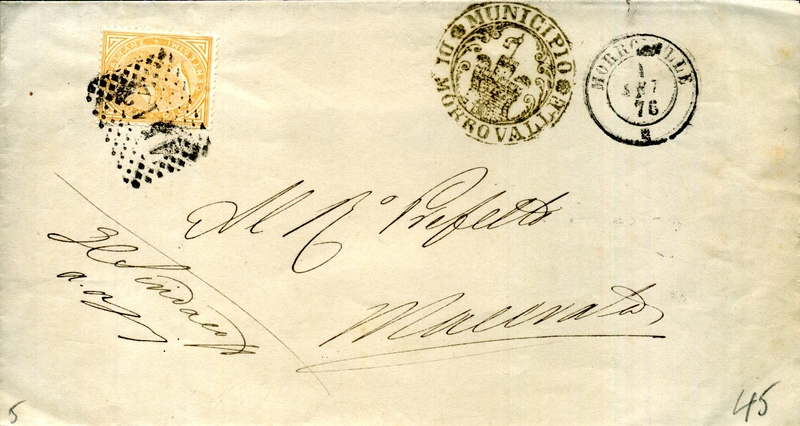 MUNICIPIO
DI MORROVALLE
MORROVALLE
1
SET
76
Al R.º Prefetto
Macerata
Il Sindaco
45
5